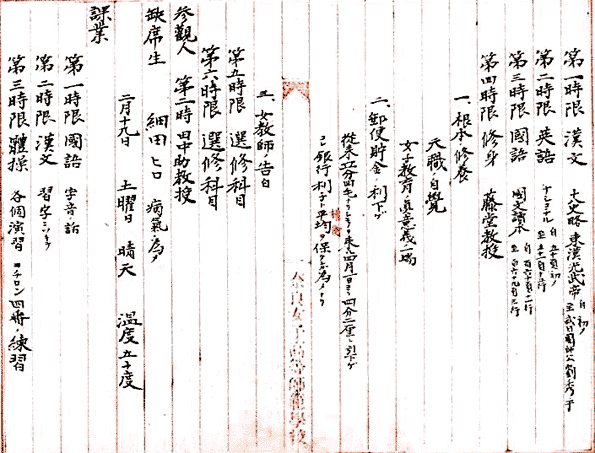 第一時限 漢文 大史略 東漢光武帝
第二時限 英語 ナショナル
第三時限 國語 國文讀本
第四時限 修身 藤堂教授
一、根本ノ修養
天職ノ自覺
女子教育ノ眞意義一端
二、郵便貯金ノ利下ゲ
從來五分四毛ナリシヲ来ル四月一日ヨリ四分二厘ニ引下ゲ
銀行利子ト平均ヲ保ツ為メナリ
三、女教師ノ告白
第五時限 選修科目
第六時限 選修科目
參觀人 第二時 田中助教授
缺席生 細田ヒロ 病氣ノ為メ
二月十九日 土曜日 晴天 溫度五十度
課業
第一時限 國語 字音ノ話
第二時限 漢文 習字
第三時限 體操 各個演習 ヨチロン四番ノ練習
奈良女子高等師範學校